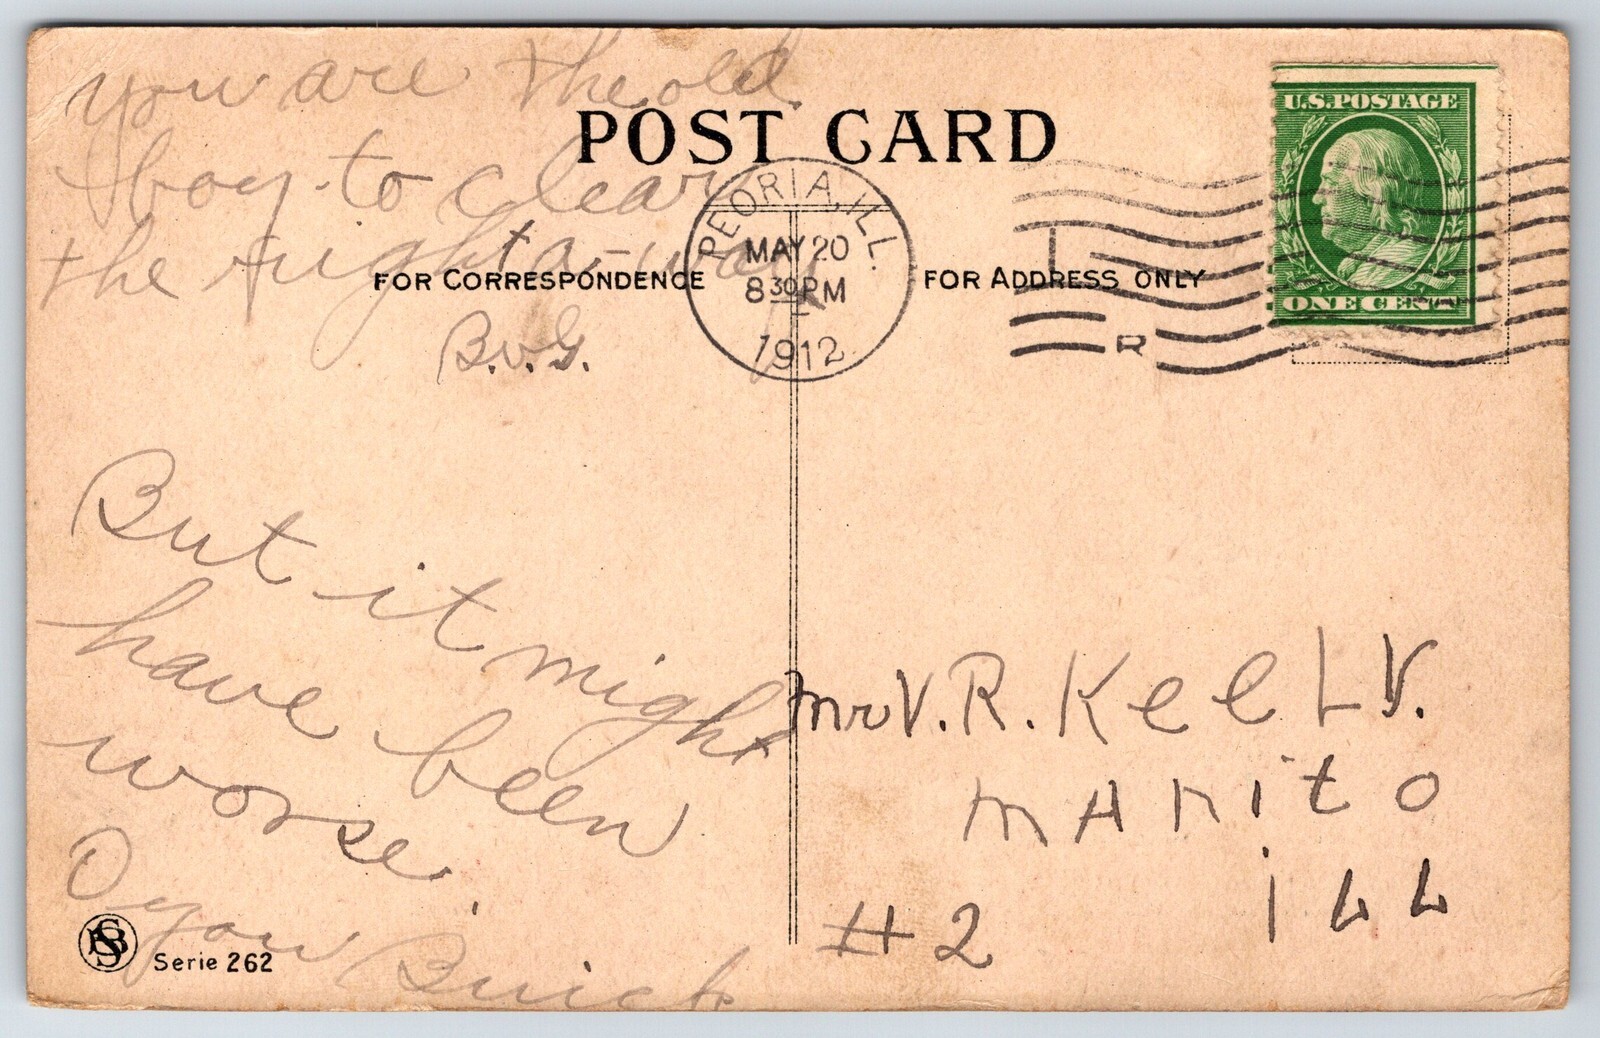 you are the old
boy to clear
the right-a-way
B.v.G.
But it might
have been
worse.
O you Buick
POST CARD
FOR CORRESPONDENCE
FOR ADDRESS ONLY
PEORIA, ILL.
MAY 20
8 30 PM
1912
R
U.S. POSTAGE
ONE CENT
Mr V. R. Keely.
Manito
ill
#2
Serie 262